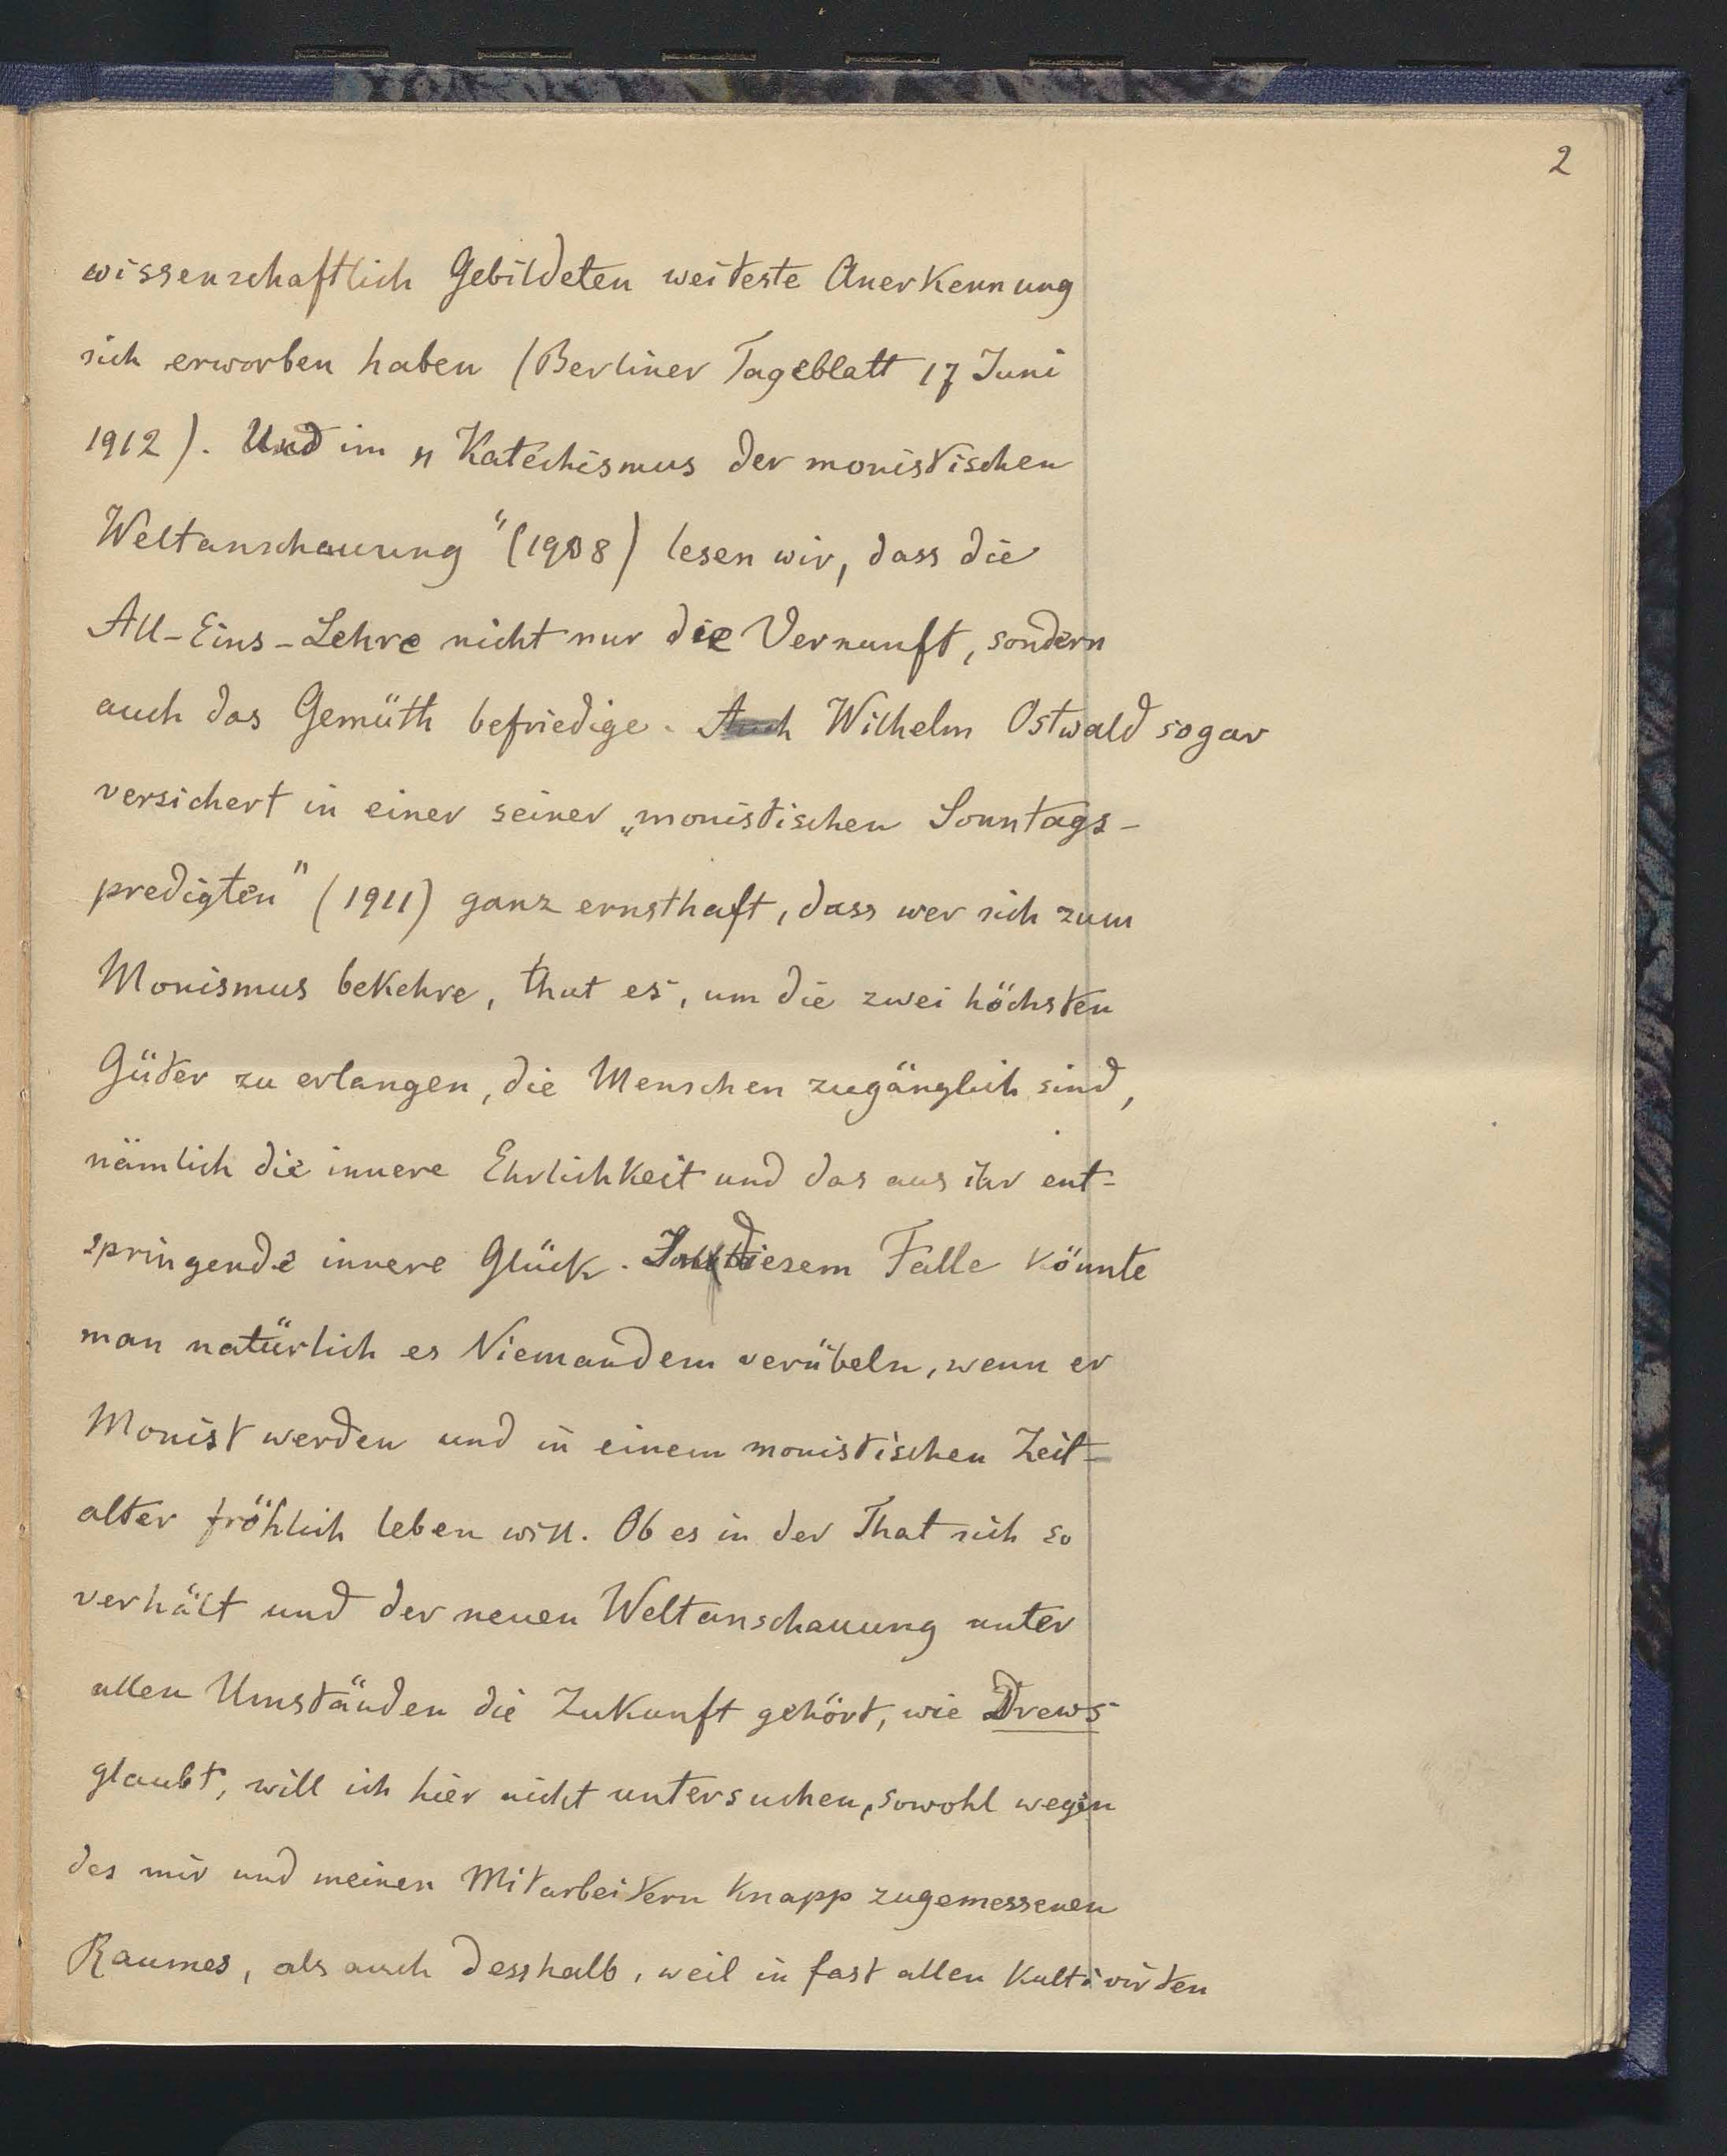 2
wissenschaftlich Gebildeten weiteste Anerkennung
sich erworben haben (Berliner Tageblatt 17 Juni
1912). Und im „Katechismus der monistischen
Weltanschauung" (1908) lesen wir, dass die
All-Eins-Lehre nicht nur die Vernunft, sondern
auch das Gemüth befriedige. Auch Wilhelm Ostwald sogar
versichert in einer seiner „monistischen Sonntags-
predigten" (1911) ganz ernsthaft, dass wer sich zum
Monismus bekehre, thut es, um die zwei höchsten
Güter zu erlangen, die Menschen zugänglich sind,
nämlich die innere Ehrlichkeit und das aus ihr ent-
springende innere Glück. In diesem Falle könnte
man natürlich es Niemandem verübeln, wenn er
Monist werden und in einem monistischen Zeit-
alter fröhlich leben will. Ob es in der That sich so
verhält und der neuen Weltanschauung unter
allen Umständen die Zukunft gehört, wie Drews
glaubt, will ich hier nicht untersuchen, sowohl wegen
des mir und meinen Mitarbeitern knapp zugemessenen
Raumes, als auch desshalb, weil in fast allen kultivirten